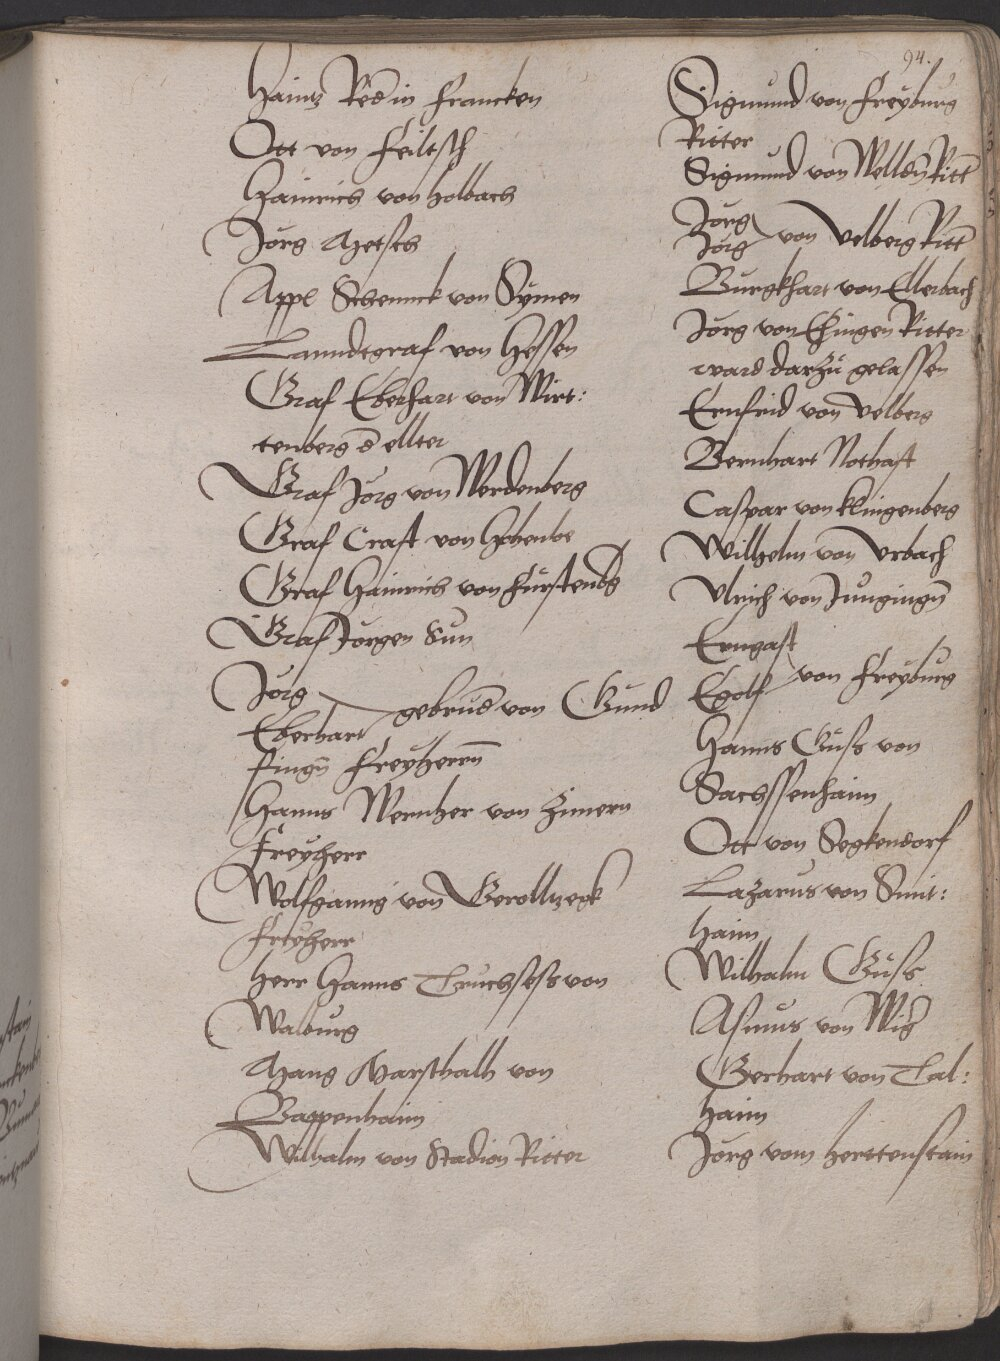 94.
Hainz Red in Francken
Ott von Feiltsch
Hainrich von Holbach
Jörg Hetsch
Appl Schennck von Symen
Lanndtgraf von Hessen
Graf Eberhart von Wirt:
tenberg d ellter
Graf Jörg von Werdenberg
Graf Craft von Hohenloe
Graf Hainrich von Fürstenbg
Graf Jörgen Sun
Jörg
Eberhart gebrüd von Gund
fingn Freyherrn
Hanns Wernher von Zimern
Freyherr
Wolfganng von Gerolltzegk
Freyherr
Herr Hanns Truchsess von
Walburg
Hans Marschalh von
Bappenhaim
Wilhalm von Stadion Ritter
Sigmund von Freyburg
Ritter
Sigmund von Welldn Ritt
Jörg
Jörg von Velberg Ritt
Burgkhart von Ellerbach
Jörg von Ehingen Ritter
ward darzu gelassen
Ernfrid von Velberg
Bernhart Nothaft
Caspar von Klingenberg
Wilhelm von Vrbach
Vlrich von Jungingn
Erngast
Egolf von Freyburg
Hanns Güss von
Sachssenhaim
Ott von Segkendorf
Lazarus von Smit:
haim
Wilhalm Güss
Asmus von
Gerhart von Tal:
haim
Jörg vom Herttenstain